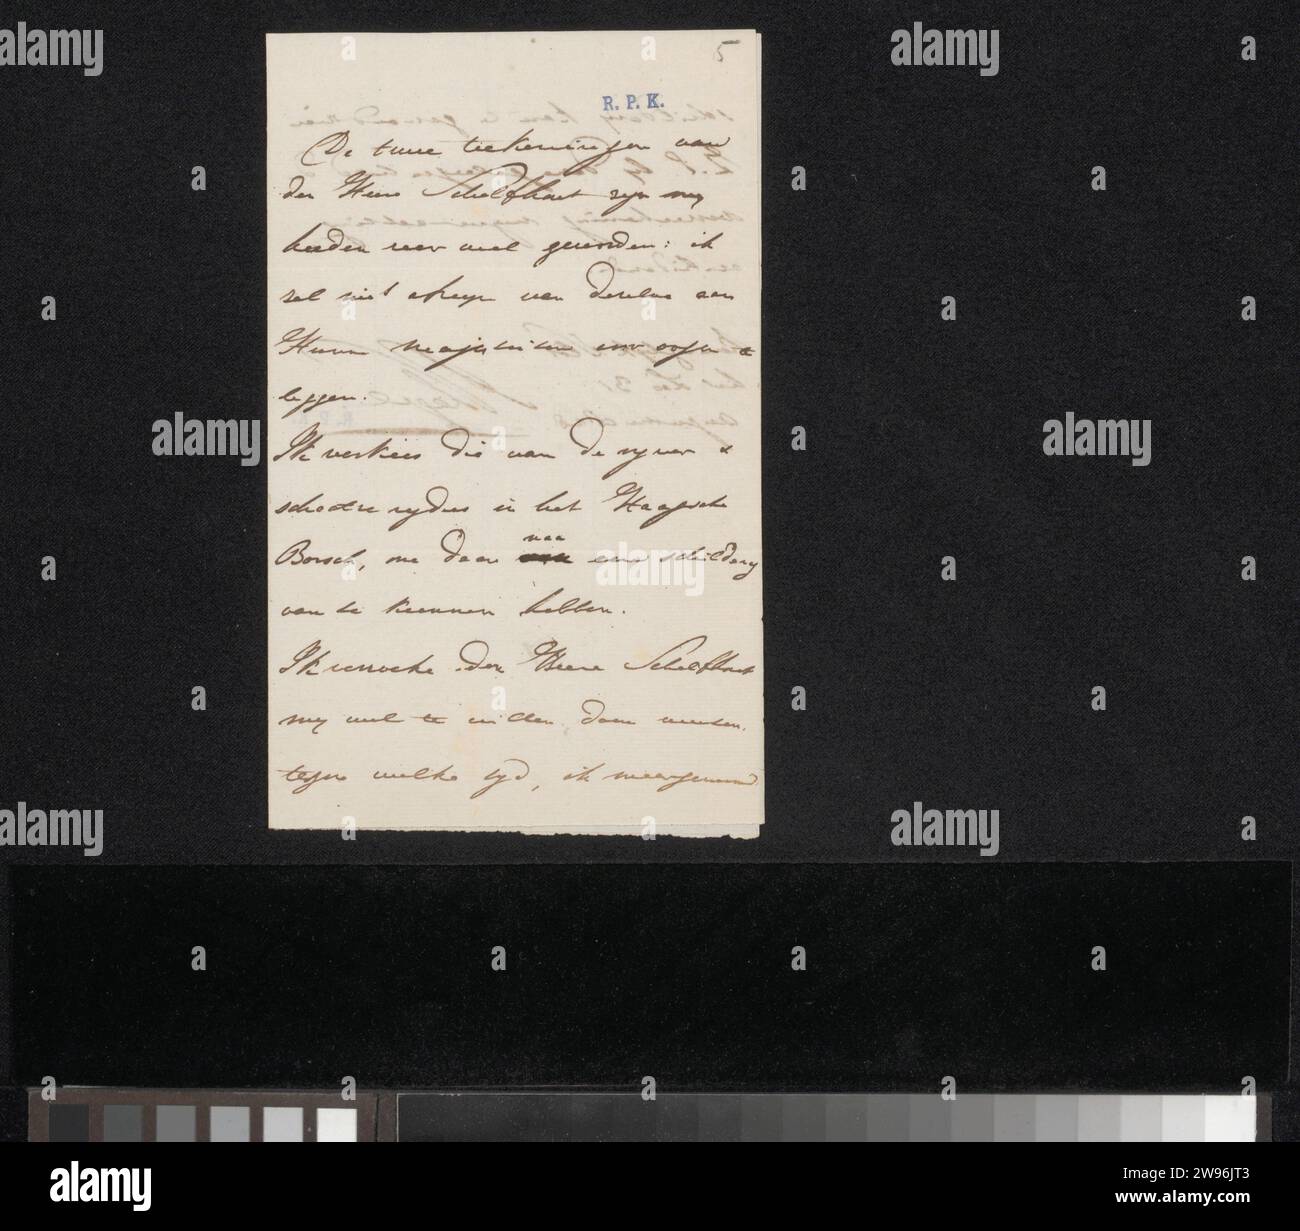 5
R. P. K.
De twee teekeningen van
den Heere Schelfhout zijn mij
heeden zeer wel geworden: ik
zal niet van dezelve aan
Hunne Majesteiten voor oogen te
leggen.
Ik verkies die van de rijver &
schaatze rijders in het Haagsche
Bosch, om daar naa een schildery
van te kunnen hebben.
Ik verzoeke den Heere Schelfhout
mij wel te willen doen weeten.
tegen welke tijd, ik
alamy
Image ID: 2W96JT3
www.alamy.com